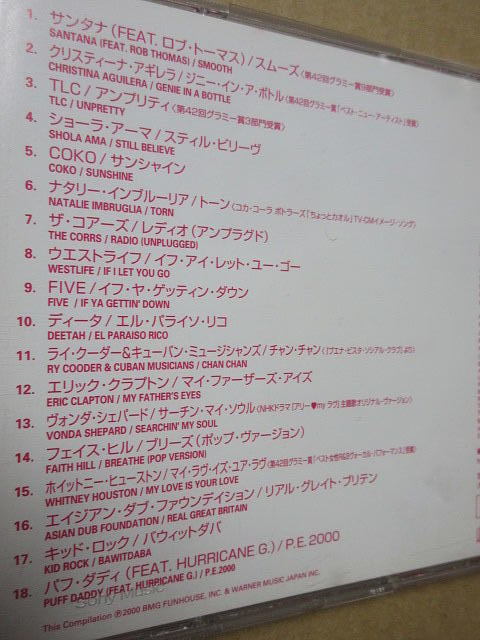 1. サンタナ (FEAT. ロブ・トーマス) / スムーズ〈第42回グラミー賞9部門受賞〉
SANTANA (FEAT. ROB THOMAS) / SMOOTH
2. クリスティーナ・アギレラ / ジニー・イン・ア・ボトル〈第42回グラミー賞「ベスト・ニュー・アーティスト」受賞〉
CHRISTINA AGUILERA / GENIE IN A BOTTLE
3. TLC / アンプリティ〈第42回グラミー賞3部門受賞〉
TLC / UNPRETTY
4. ショーラ・アーマ / スティル・ビリーヴ
SHOLA AMA / STILL BELIEVE
5. COKO / サンシャイン
COKO / SUNSHINE
6. ナタリー・インブルーリア / トーン〈コカ・コーラ ボトラーズ「ちょっとカオル」TV-CMイメージ・ソング〉
NATALIE IMBRUGLIA / TORN
7. ザ・コアーズ / レディオ (アンプラグド)
THE CORRS / RADIO (UNPLUGGED)
8. ウエストライフ / イフ・アイ・レット・ユー・ゴー
WESTLIFE / IF I LET YOU GO
9. FIVE / イフ・ヤ・ゲッティン・ダウン
FIVE / IF YA GETTIN' DOWN
10. ディータ / エル・パライソ・リコ
DEETAH / EL PARAISO RICO
11. ライ・クーダー&キューバン・ミュージシャンズ / チャン・チャン〈「ブエナ・ビスタ・ソシアル・クラブ」より〉
RY COODER & CUBAN MUSICIANS / CHAN CHAN
12. エリック・クラプトン / マイ・ファーザーズ・アイズ
ERIC CLAPTON / MY FATHER'S EYES
13. ヴォンダ・シェパード / サーチン・マイ・ソウル〈NHKドラマ「アリー♥my ラヴ」主題歌オリジナル・ヴァージョン〉
VONDA SHEPARD / SEARCHIN' MY SOUL
14. フェイス・ヒル / ブリーズ (ポップ・ヴァージョン)
FAITH HILL / BREATHE (POP VERSION)
15. ホイットニー・ヒューストン / マイ・ラヴ・イズ・ユア・ラヴ〈第42回グラミー賞「ベスト女性R&Bヴォーカル・パフォーマンス」受賞〉
WHITNEY HOUSTON / MY LOVE IS YOUR LOVE
16. エイジアン・ダブ・ファウンデイション / リアル・グレイト・ブリテン
ASIAN DUB FOUNDATION / REAL GREAT BRITAIN
17. キッド・ロック / バウィットダバ
KID ROCK / BAWITDABA
18. パフ・ダディ (FEAT. HURRICANE G.) / P.E. 2000
PUFF DADDY (FEAT. HURRICANE G.) / P.E. 2000
Sony Music
This Compilation ℗2000 BMG FUNHOUSE, INC. & WARNER MUSIC JAPAN INC.